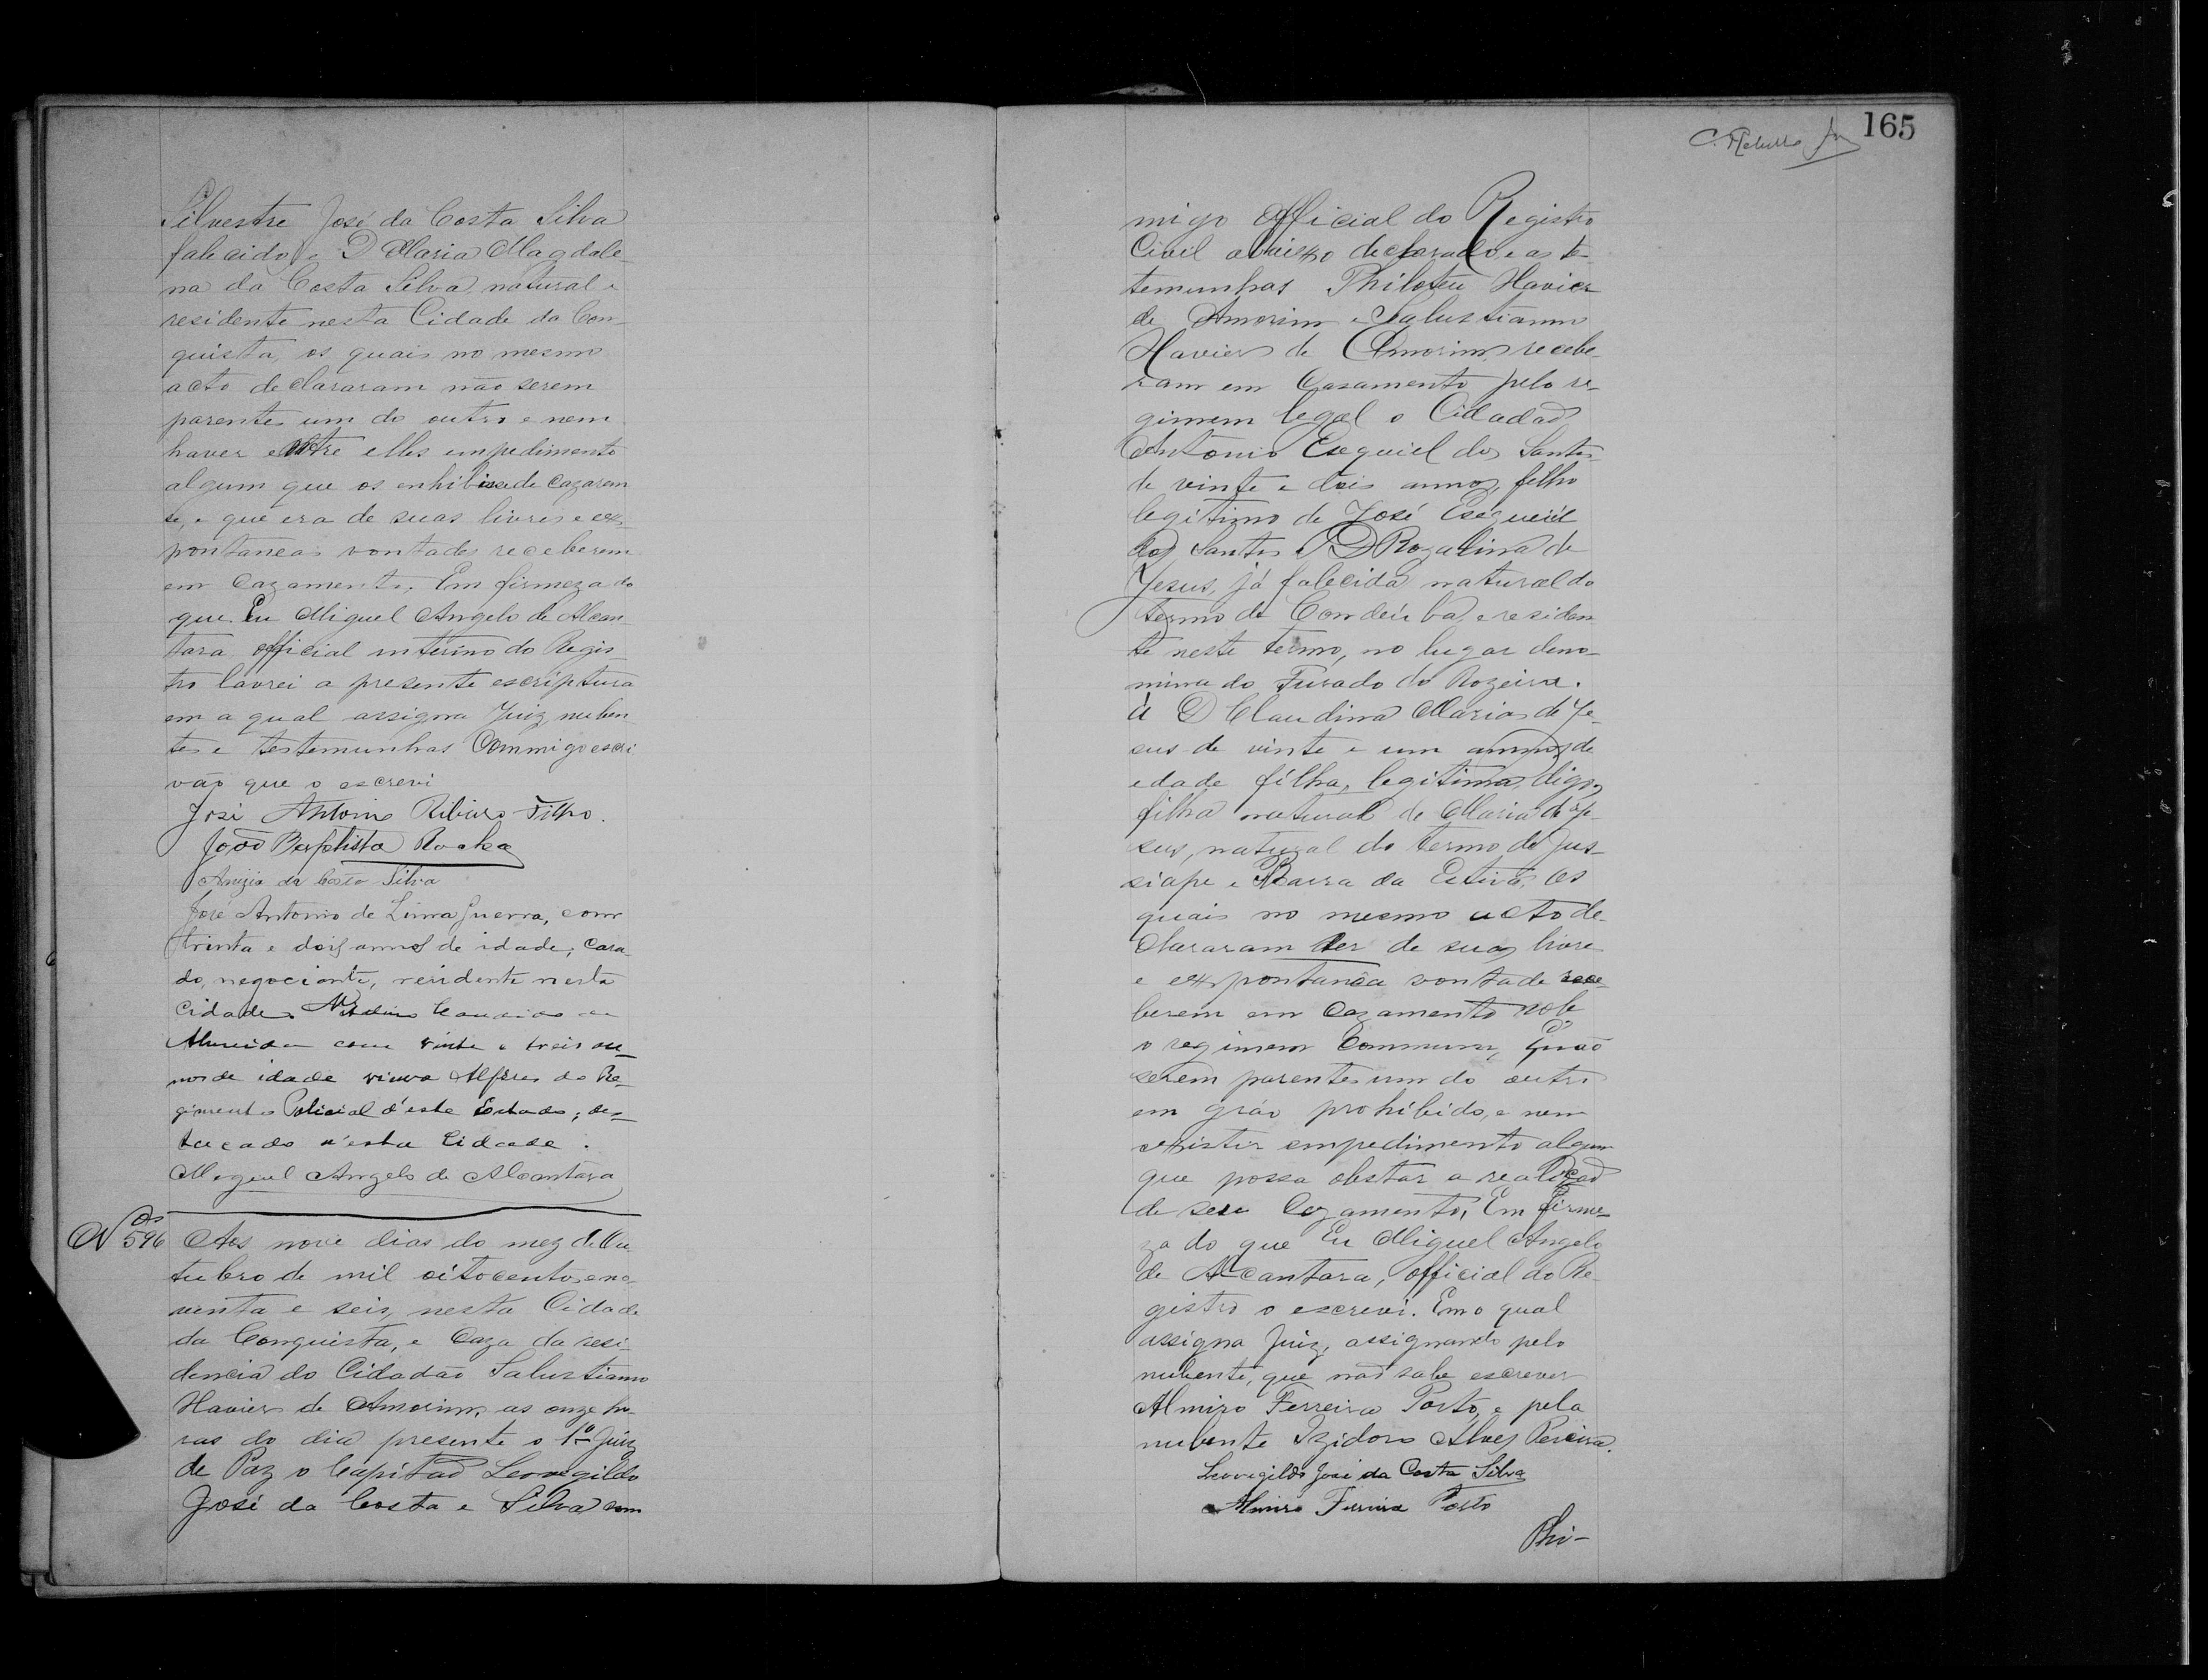 Silvestre José da Costa Silva
falecido, e D Maria Magdale-
na da Costa Silva, natural e
residente nesta Cidade da Con-
quista, os quais no mesmo
acto declararam não serem
parentes um do outro e nem
haver entre elles empedimento
algum que os enhibisse de cazarem
se, e que era de suas livres e ex-
pontaneas vontades receberem
em Cazamento. Em firmeza do
que Eu Miguel Angelo de Alcan-
tara official interino do Regis-
tro lavrei a presente escriptura
em a qual assigna Juiz, nuben-
tes e testemunhas Commigo escri
vão que o escrevi
José Antonio Ribeiro Filho.
João Baptista Rocha
Anizia da Costa Silva
José Antonio de Lima Guerra, com
trinta e dois annos de idade, casa-
do, negociante, residente nesta
Cidade
Almeida com vinte e treis an-
nos de idade viuvo Alferes do Re-
gimento Policial d'este Estado; des-
tacado n'esta Cidade.
Miguel Angelo de Alcantara
Nº 596 Aos nove dias do mez de Ou-
tubro de mil oitocentos e no-
venta e seis, nesta Cidade
da Conquista, e Caza da resi-
dencia do Cidadão Salustiano
Havier de Amorim, as onze ho-
ras do dia presente o 1º Juiz
de Paz o Capitão Leovegildo
José da Costa e Silva com
165
migo Official do Registro
Civil abaixo declarado, e as te-
temunhas Philoteu Havier
de Amorim e Salustianno
Havier de Amorim, recebe-
ram em Casamento pelo re-
gimem legal o Cidadão
Antonio Esequiel dos Santos
de vinte e dois annos, filho
legitimo de José Esequiel
dos Santos e D Rozalina de
Jesus, já falecida natural do
termo de Condeúba, e residen-
te neste termo, no lugar deno-
minado Furado do Rozeira.
á D Claudina Maria de Je-
sus de vinte e um annos de
edade filha, legitima, digo,
filha natural de Maria de Je-
sus, natural do termo de Jus-
siape e Barra da Estiva, os
quais no mesmo acto de-
clararam ser de sua livre
e expontanêa vontade rece-
berem em Cazamento sob
o regimem Commum, e não
serem parentes um do outro
em gráo prohibido, e nem
existir empedimento algum
que possa obstar a realização
de seu Cazamento, Em firme-
za do que Eu Miguel Angelo
de Alcantara, official do Re-
gistro o escrevi. Em o qual
assigna Juiz, assignando pelo
nubente, que não sabe escrever
Almiro Ferreira Porto, e pela
nubente Izidoro Alves Pereira.
Leovigildo José da Costa Silva
Almiro Ferreira Porto
Phi-